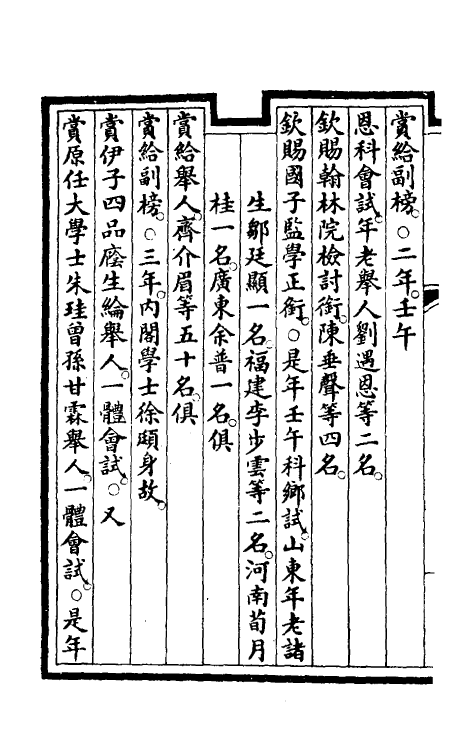 賞給副榜。○二年。壬午
恩科會試。年老舉人劉遇恩等二名。
欽賜翰林院檢討銜。陳垂聲等四名。
欽賜國子監學正銜。○是年壬午科鄉試。山東年老諸
生鄒廷顯一名。福建李步雲等二名。河南荀月
桂一名。廣東余普一名。俱
賞給舉人。齊介眉等五十名。俱
賞給副榜。○三年。內閣學士徐頲身故。
賞伊子四品廕生綸舉人。一體會試。○又
賞原任大學士朱珪曾孫甘霖舉人。一體會試。○是年